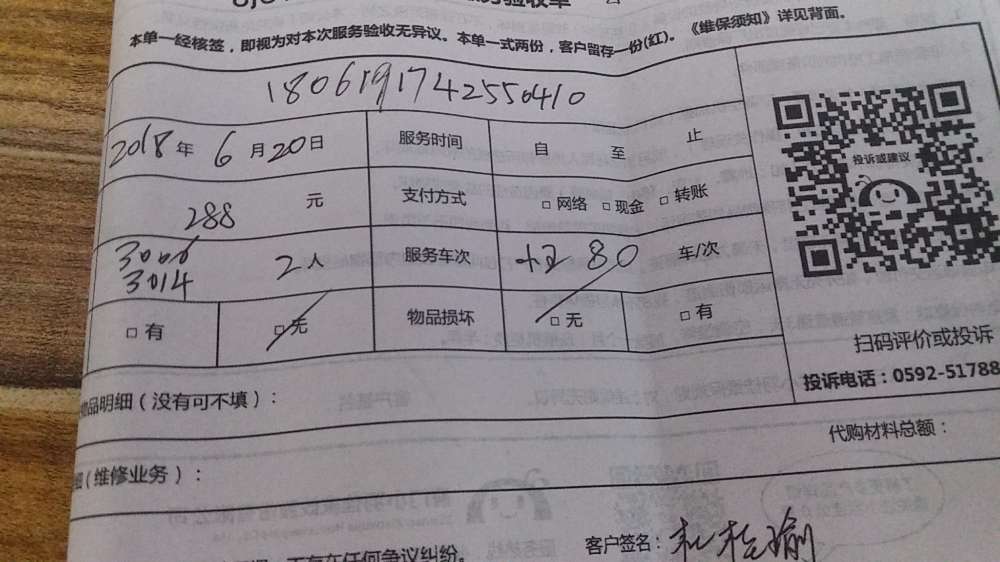 验收单
本单一经核签，即视为对本次服务验收无异议。本单一式两份，客户留存一份(红)。《维保须知》详见背面。
1806191742550410
2018年 6月20日 服务时间 自 至 止
288 元 支付方式 □网络 □现金 □转账
3006
3014 2人 服务车次 +2 80 车/次
□有 □无 物品损坏 □无 □有
投诉或建议
扫码评价或投诉
投诉电话：0592-51788
物品明细（没有可不填）：
代购材料总额：
（维修业务）：
不存在任何争议纠纷。
客户签名：